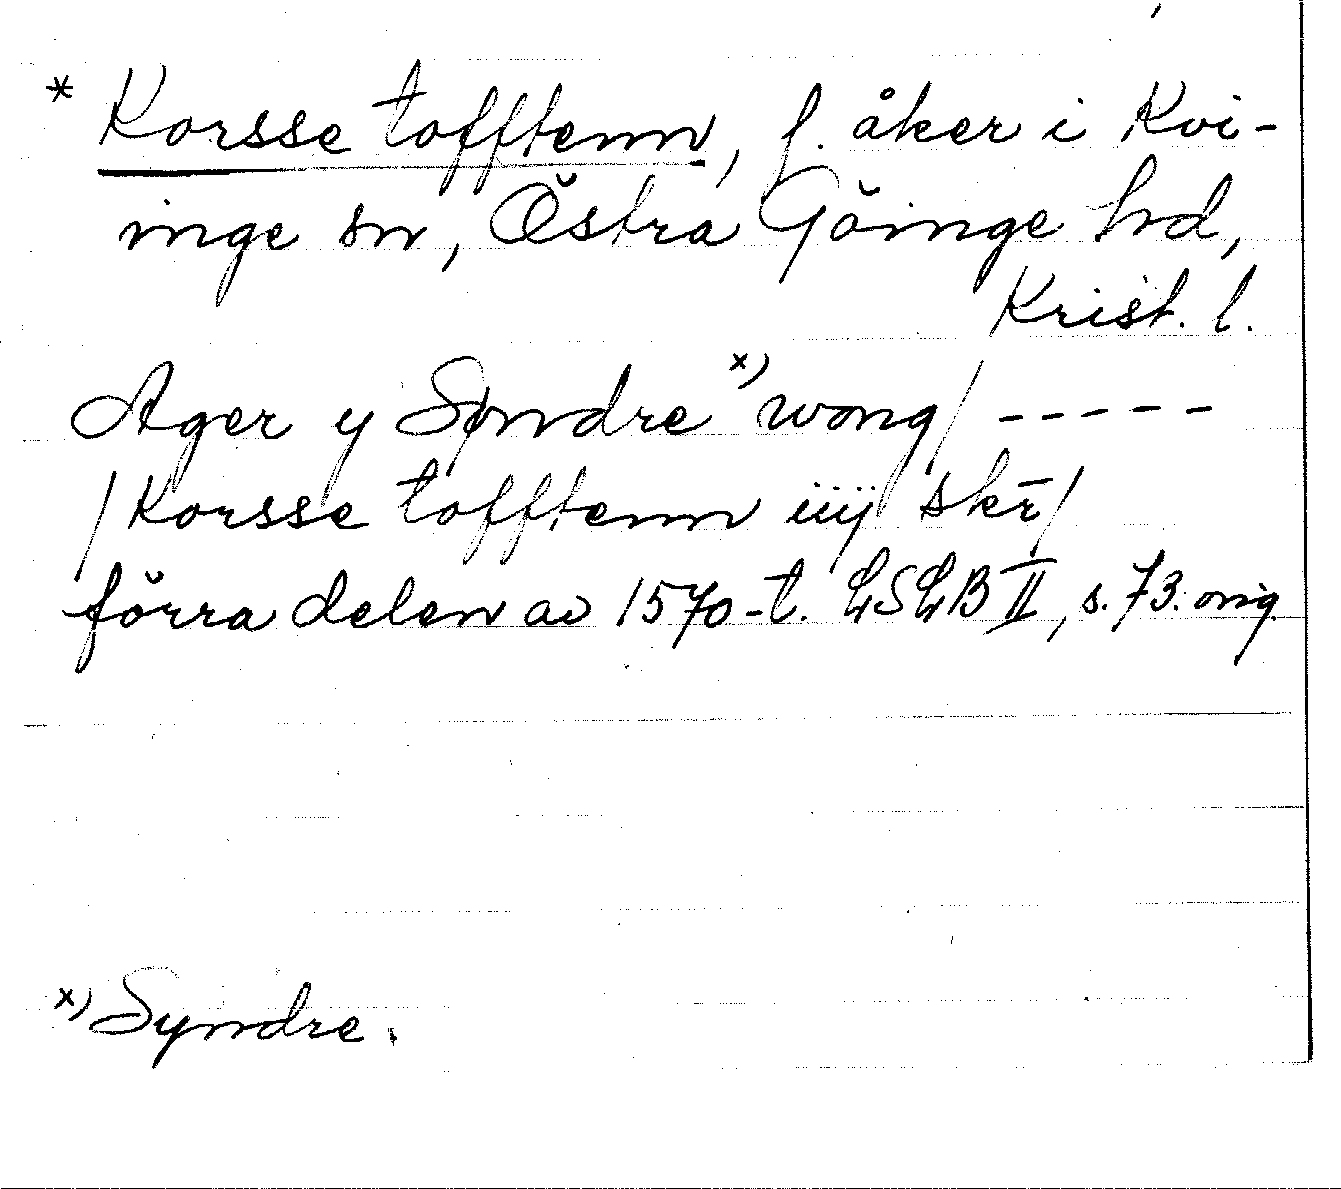 * Korsse tofftenn, f. åker i Kvi-
inge sn, Östra Göinge hd,
Krist. l.
Ager y Søndre x) wong/ - - - - -
/Korsse tofftenn iiij skr̄/
förra delen av 1570-t. LSLB II, s. 73. orig.
x) Syndre.